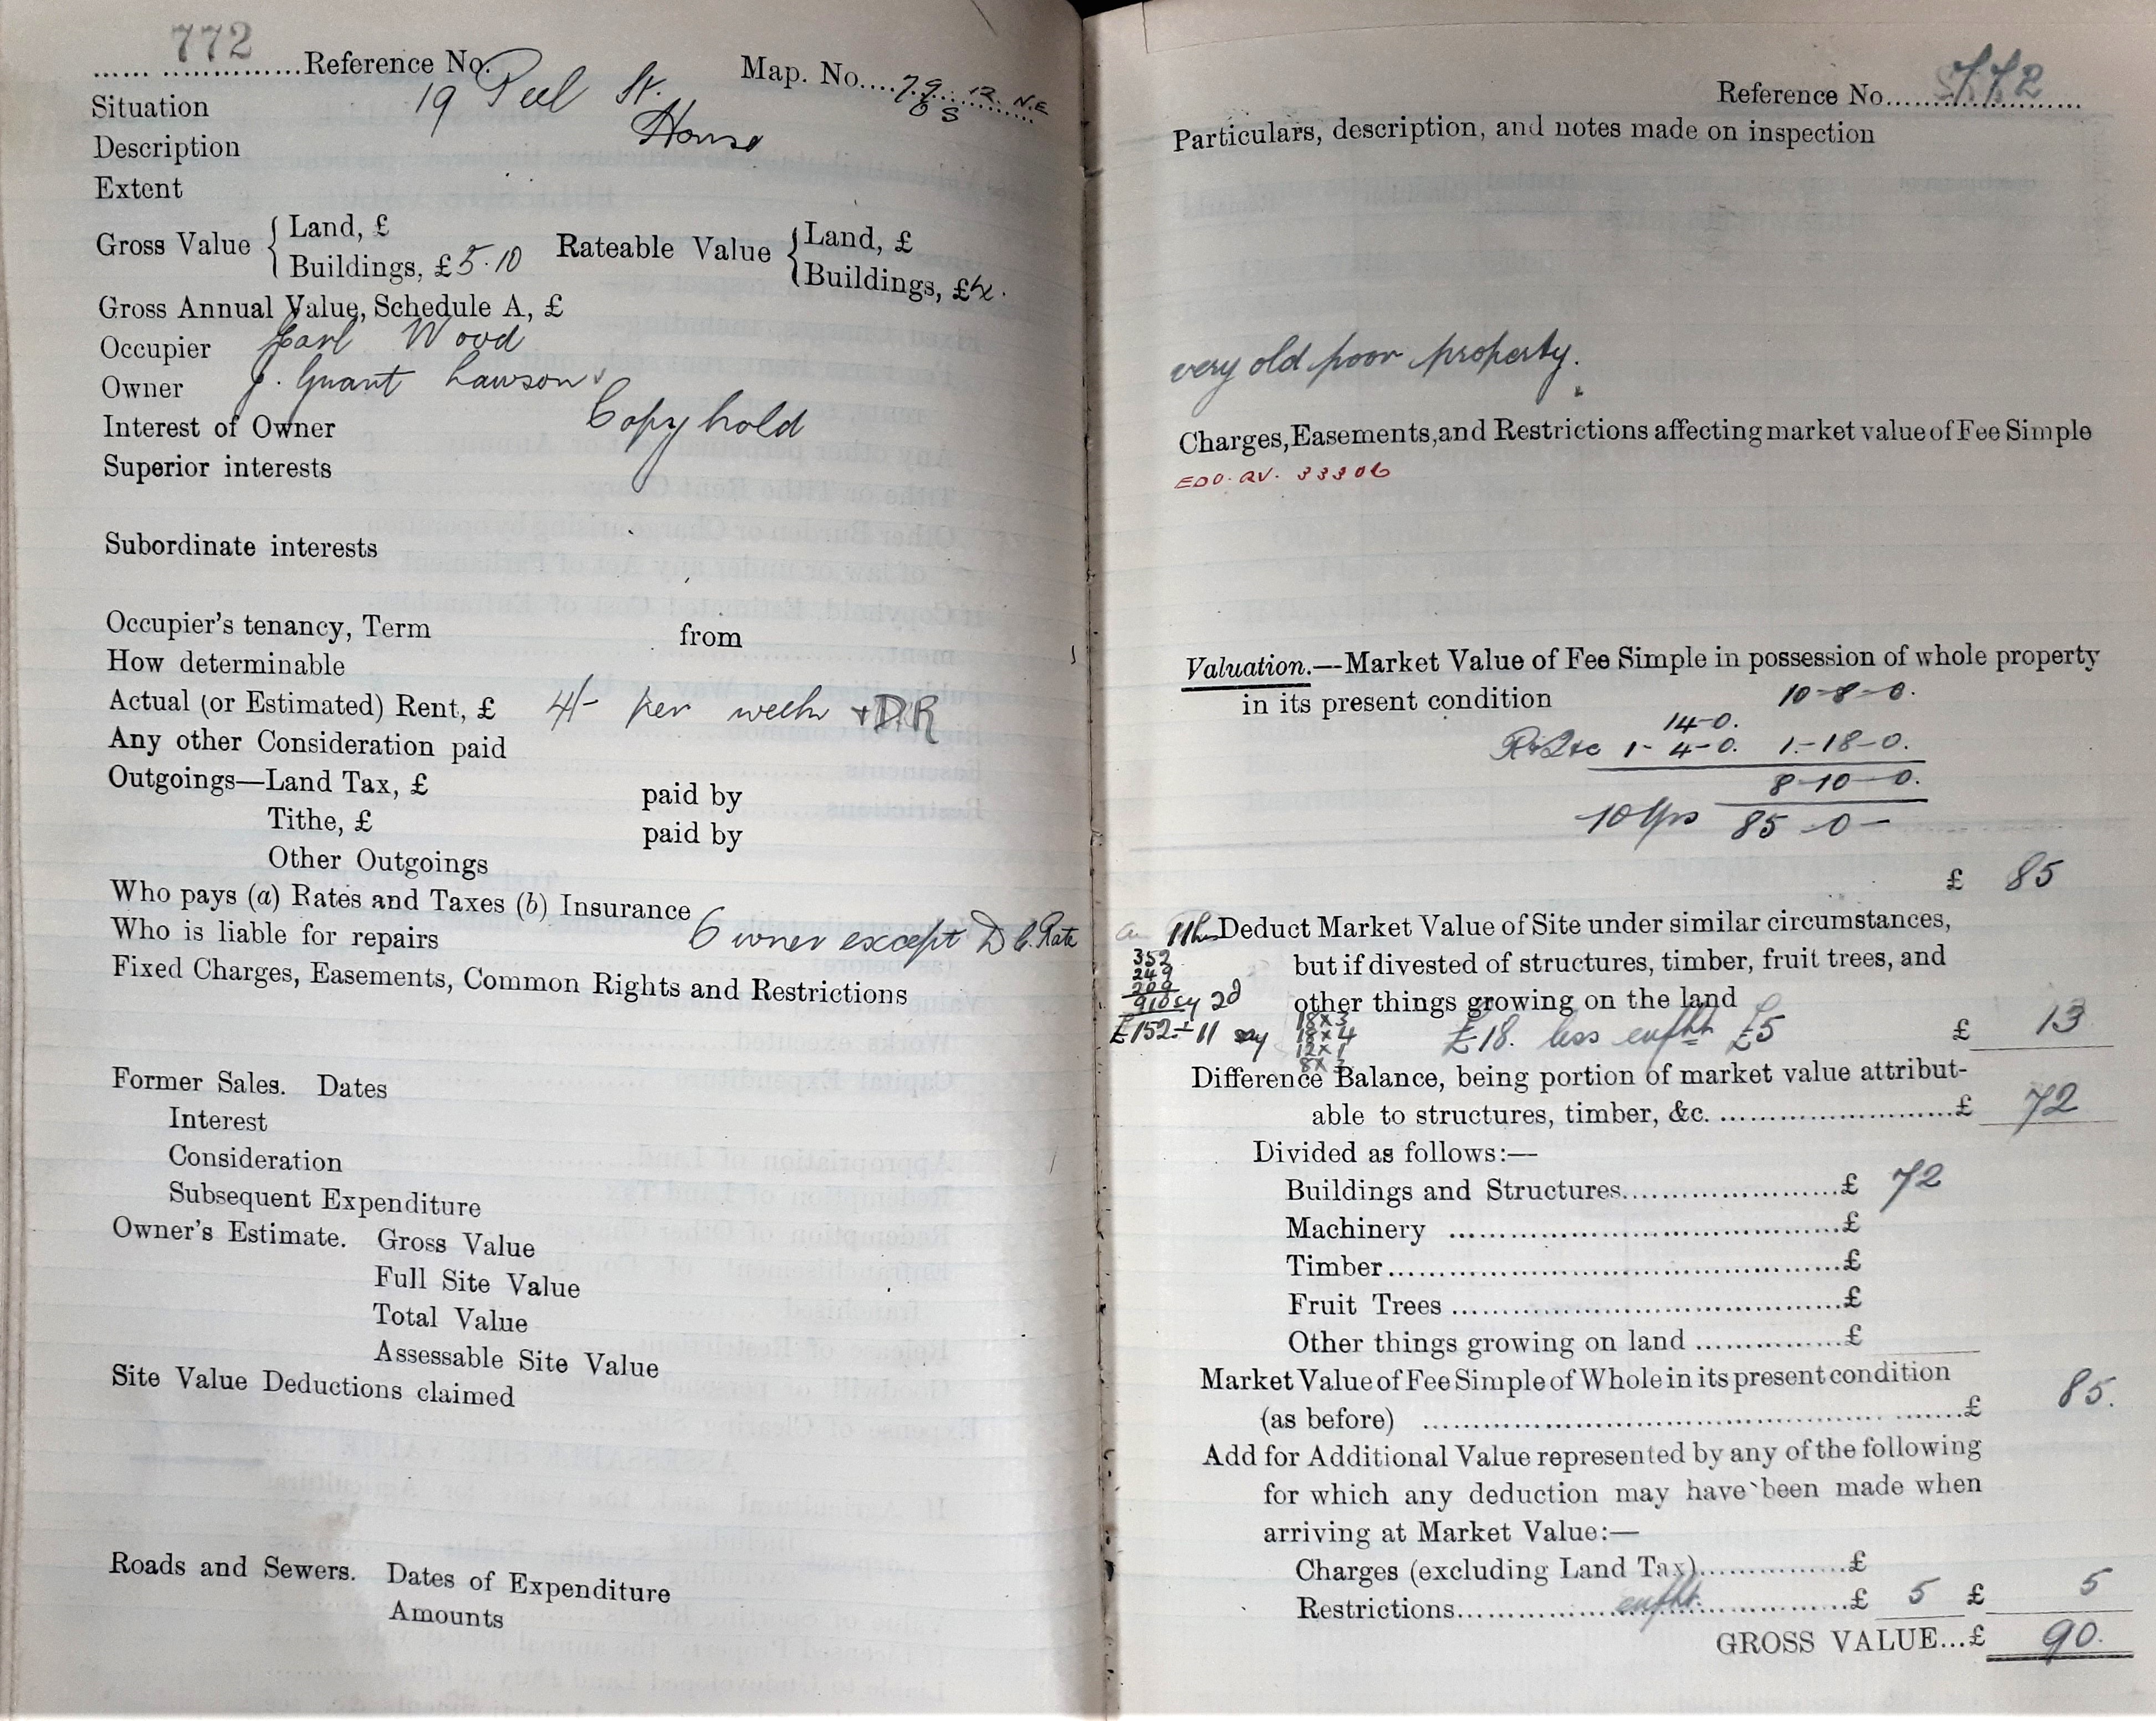 772
Reference No.
Map. No. 79 12 N.E
8 S
Situation 19 Peel St.
Description House
Extent
Gross Value { Land, £
Buildings, £ 5.10
Rateable Value { Land, £
Buildings, £ 4.
Gross Annual Value, Schedule A, £
Occupier Wood
Owner J. Grant Lawson
Interest of Owner Copyhold
Superior interests
Subordinate interests
Occupier's tenancy, Term from
How determinable
Actual (or Estimated) Rent, £ 4/- per week + DR
Any other Consideration paid
Outgoings—Land Tax, £ paid by
Tithe, £ paid by
Other Outgoings
Who pays (a) Rates and Taxes (b) Insurance
Who is liable for repairs Owner except D C. Rate
Fixed Charges, Easements, Common Rights and Restrictions
Former Sales. Dates
Interest
Consideration
Subsequent Expenditure
Owner's Estimate. Gross Value
Full Site Value
Total Value
Assessable Site Value
Site Value Deductions claimed
Roads and Sewers. Dates of Expenditure
Amounts
Reference No. 772
Particulars, description, and notes made on inspection
very old poor property.
Charges, Easements, and Restrictions affecting market value of Fee Simple
EDO. RV. 33306
Valuation.—Market Value of Fee Simple in possession of whole property
in its present condition 10-8-0.
14-0.
1-4-0. 1-18-0.
8-10-0.
10 Yrs 85-0-
£ 85
Deduct Market Value of Site under similar circumstances,
352
249
209
but if divested of structures, timber, fruit trees, and
910 say 2d
other things growing on the land
£152 ÷ 11 say
18 x 3
18 x 4
12 x 1
8 x 3
£18. less enfht £5 £ 13
Difference Balance, being portion of market value attribut-
able to structures, timber, &c. £ 72
Divided as follows:—
Buildings and Structures £ 72
Machinery £
Timber £
Fruit Trees £
Other things growing on land £
Market Value of Fee Simple of Whole in its present condition
(as before) £ 85.
Add for Additional Value represented by any of the following
for which any deduction may have been made when
arriving at Market Value:—
Charges (excluding Land Tax) £
Restrictions enfht. £ 5 £ 5
GROSS VALUE...£ 90.